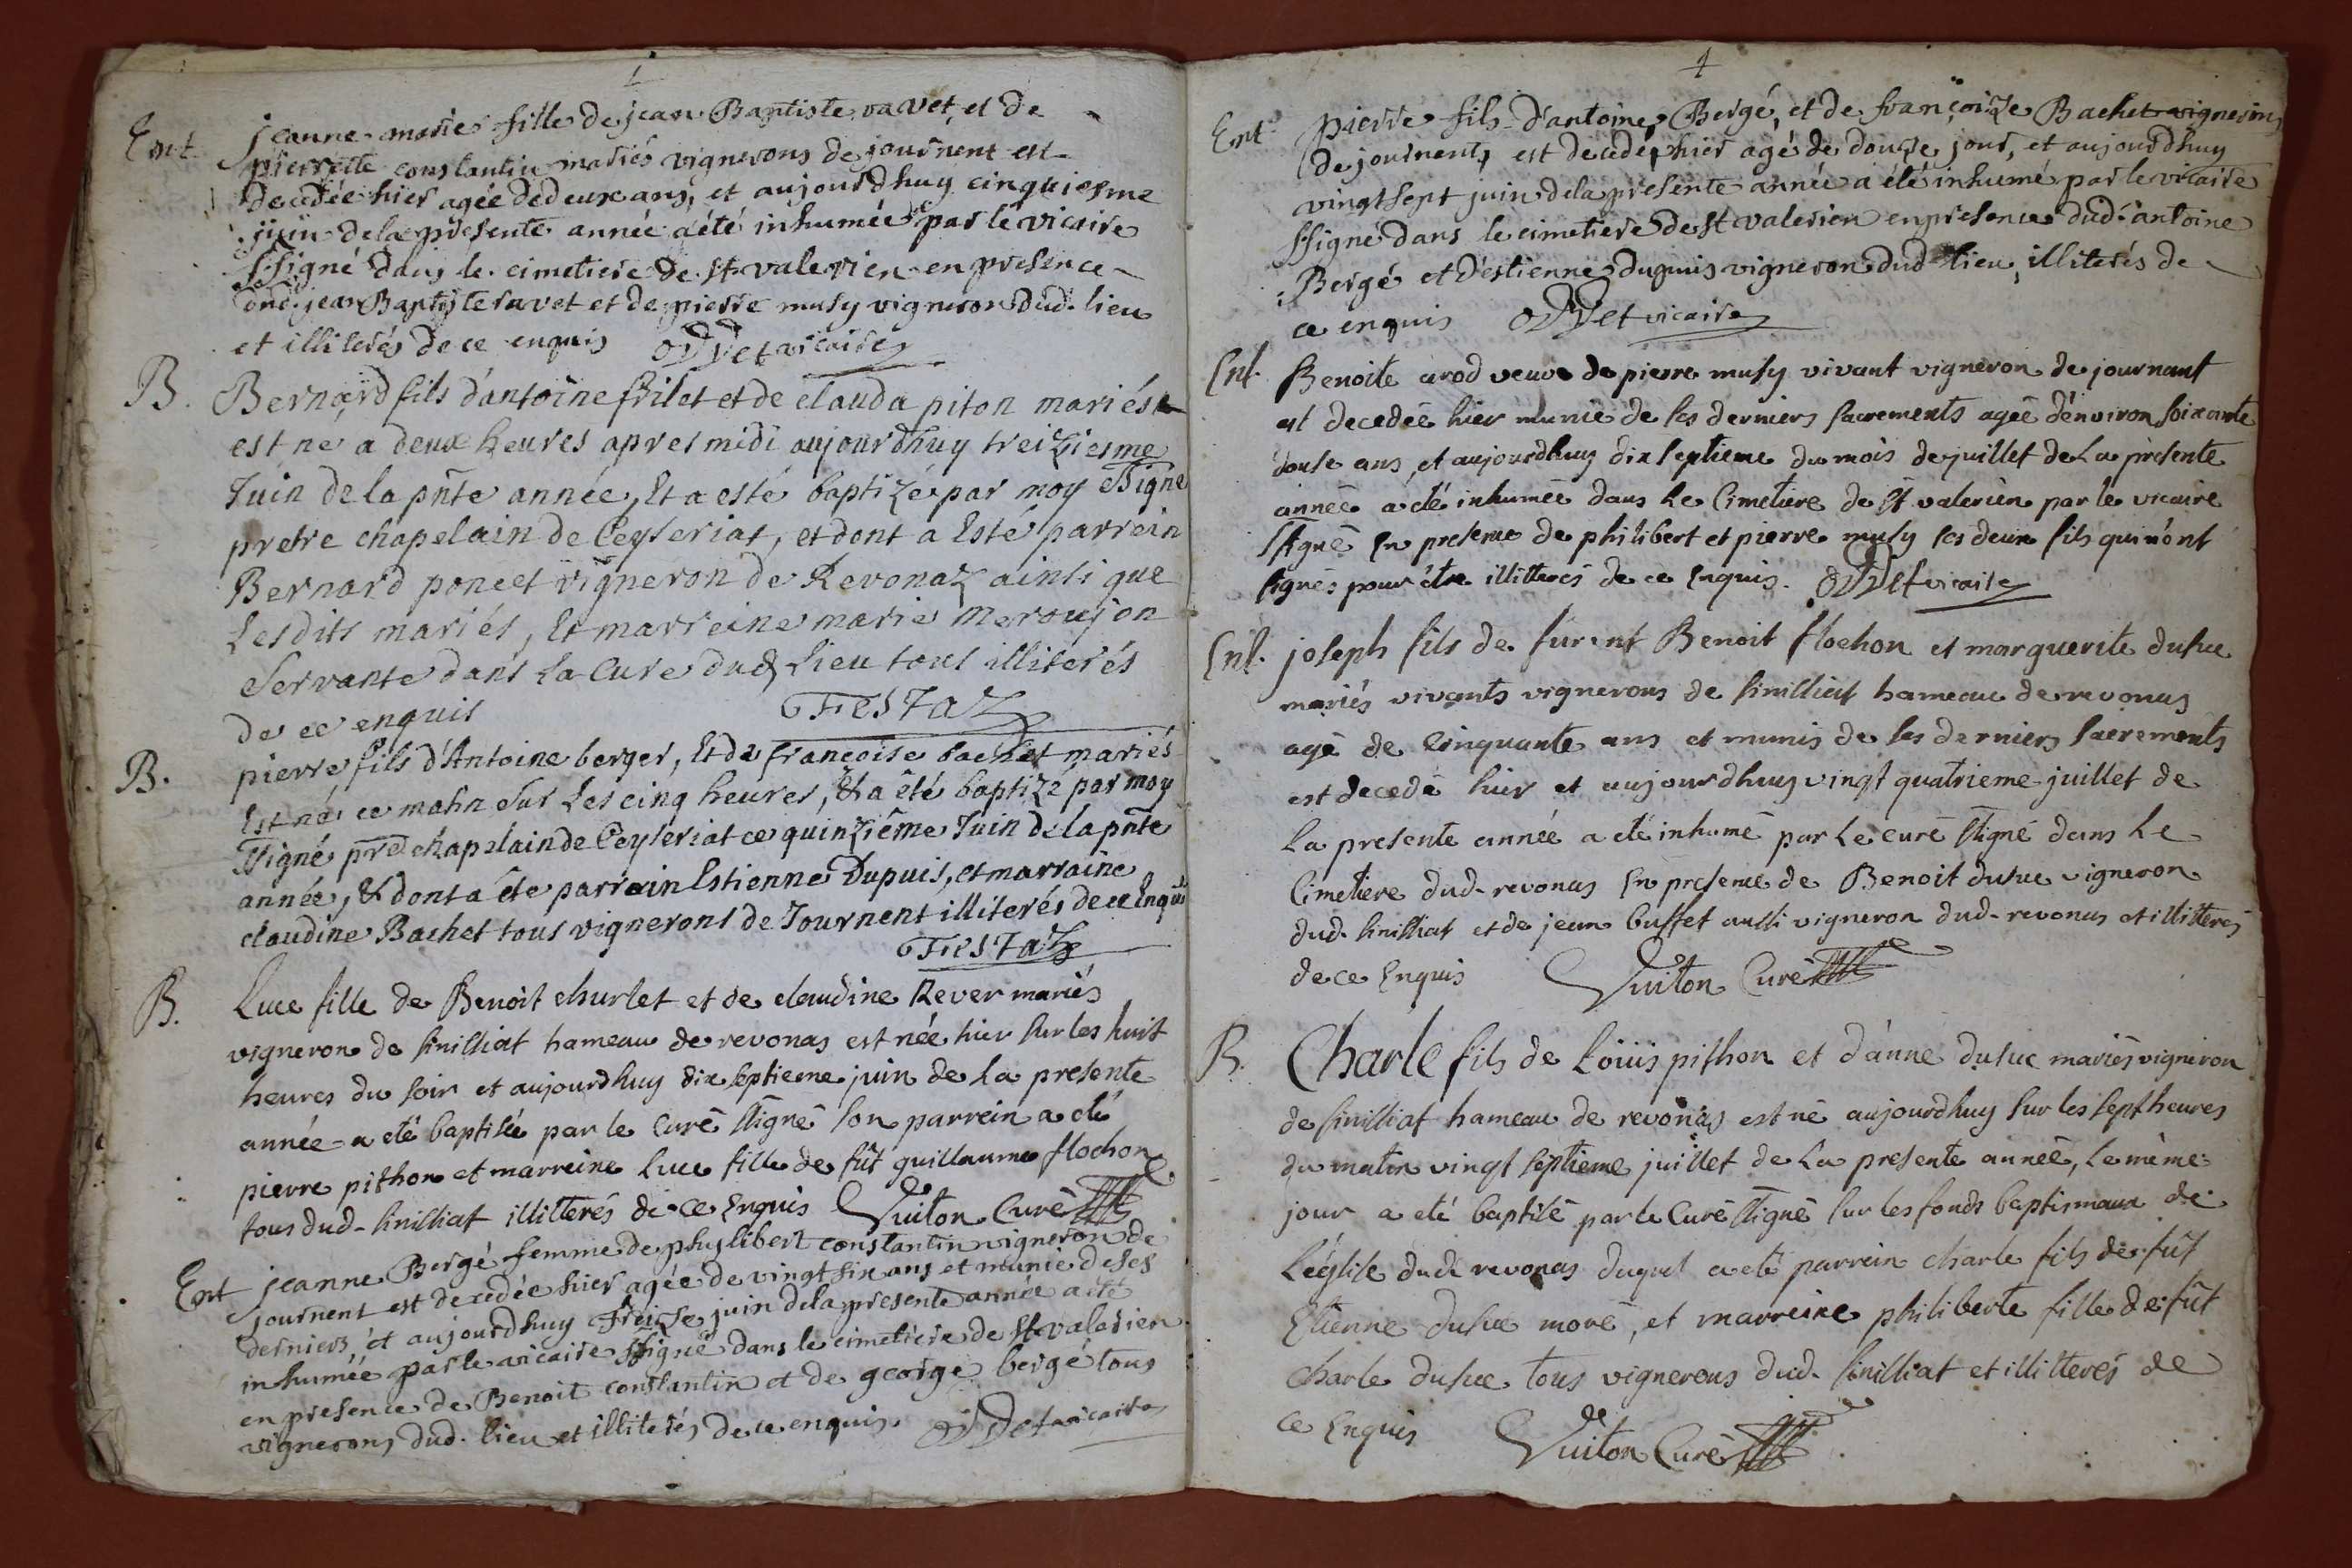 Ent. jeanne marie fille de jean Baptiste ravet, et de
pierrette constantin mariés vignerons de journent est
decedée hier agée de deux ans, et aujourdhuy cinquiesme
juin dela presente année a été inhumée par le vicaire
ssigné dans le cimetiere de st valerien en presence
dud. jean Baptiste ravet et de pierre musy vigneron dud. lieu
et illiterés de ce enquis oddet vicaire
B. Bernard fils d'antoine frilet et de clauda piton mariés
est né a deux heures apres midi aujourdhuy treiziesme
Juin de la pñte année, Et a esté baptizé par moy ssigné
pretre chapelain de Ceyseriat, et dont a Esté parrein
Bernard poncet vigneron de Revonaz ainsi que
Lesdits mariés, Et marreine marie meroujon
Servante dans La Cure dud Lieu tous illiterés
de ce enquis FESTAZ
B. pierre fils d'Antoine berger, Et de francoise bachet mariés
Est né ce matin sur Les cinq heures, & a été baptizé par moy
ssigné prê chapelain de Ceyseriat ce quinziême Juin de la pñte
année, & dont a été parrein Estienne Dupuis, et marraine
claudine Bachet tous vignerons de Journent illiterés de ce Enquis
FESTAZ
B. Luce fille de Benoit churlet et de claudine Rever mariés
vigneron de sinilliat hameau de revonas est née hier sur les huit
heures du soir et aujourdhuy dix septieme juin de la presente
année a eté baptisée par le Curé ssigné son parrein a eté
pierre pithon et marreine Luce fille de fût guillaume flochon
tous dud. sinilliat illitterés de ce Enquis Vuiton Curé
Ent jeanne Bergé femme de phylibert constantin vigneron de
journent est decedée hier agée de vingt six ans et munie de ses
derniers, et aujourdhuy Treize juin dela presente année a été
inhumée par le vicaire ssigné dans le cimetiere de st valerien
en presence de Benoit constantin et de george bergé tous
vignerons dud. lieu et illiterés de ce enquis. oddet vicaire
1
Ent pierre fils d'antoine Bergé, et de françoize Bachet vignerons
de journent, est decedé hier agé de douze jour, et aujourdhuy
vingt sept juin dela presente année a été inhumé par le vicaire
ssigne dans le cimetiere de st valerien en presence dud. antoine
Bergé et d'estienne dupuis vigneron dud lieu, illiterés de
ce enquis oddet vicaire
Ent. Benoite arod veuve de pierre musy vivant vigneron de journant
est decedée hier munie de ses derniers sacrements agée d'environ soixante
douse ans, et aujourdhuy dix septieme du mois de juillet de La presente
année a eté inhumée dans Le Cimetiere de st valerien par le vicaire
ssigné En presence de philibert et pierre musy ses deux fils qui n'ont
signés pour être illitterés de ce Enquis. oddet vicaire
Ent. joseph fils de furent Benoit flochon et marguerite dusuc
mariés vivants vignerons de sinilliat hameau de revonas
agé de Cinquante ans et munis de ses derniers sacrements
est decedé hier et aujourdhuy vingt quatrieme juillet de
La presente année a eté inhumé par Le curé ssigné dans Le
Cimetiere dud. revonas En presence de Benoit dusuc vigneron
dud. sinilliat et de jean buffet aussi vigneron dud. revonas et illitterés
de ce Enquis Vuiton Curé
B. Charle fils de Loüis pithon et d'anne dusuc mariés vigneron
de sinilliat hameau de revonas est né aujourdhuy sur les sept heures
du matin vingt septieme juillet de La presente année, Le même
jour a eté baptisé par le Curé ssigné sur les fonds baptismaux de
L'église dud. revonas duquel a eté parrein charle fils de fût
Etienne dusuc moré, et marreine philiberte fille de fût
Charle dusuc tous vignerons dud. sinilliat et illitterés de
ce Enquis Vuiton Curé